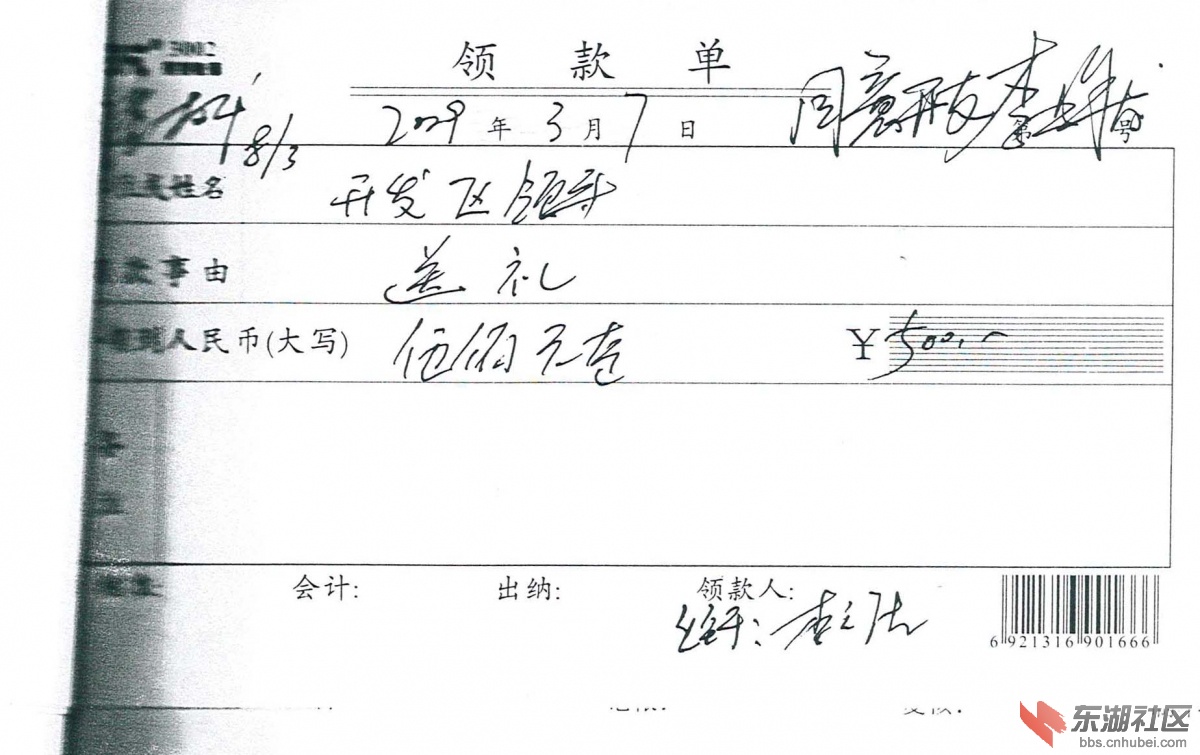 3002
领 款 单
8/3
2009年3月7日
同意开支
第 号
姓名 开发区领导
事由 送礼
到人民币(大写) 伍佰元整 ¥500.
会计: 出纳: 领款人:
经手:
6 921316 901666
东湖社区
bbs.cnhubei.com